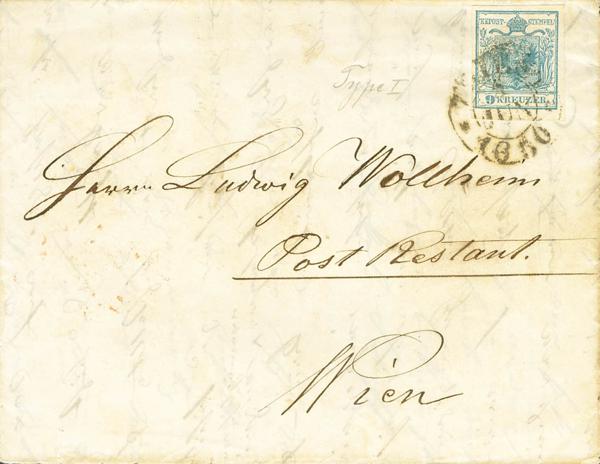 KK POST-STEMPEL
9 KREUZER
Type I
1850
Herrn Ludwig Wollheim
Post Restant.
Wien